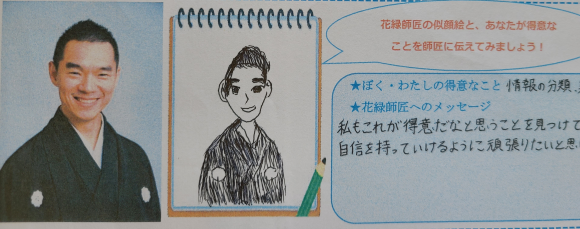 花緑師匠の似顔絵と、あなたが得意な
ことを師匠に伝えてみましょう！
★ぼく・わたしの得意なこと 情報の分類、
★花緑師匠へのメッセージ
私もこれが得意だなと思うことを見つけて
自信を持っていけるように頑張りたいと思い